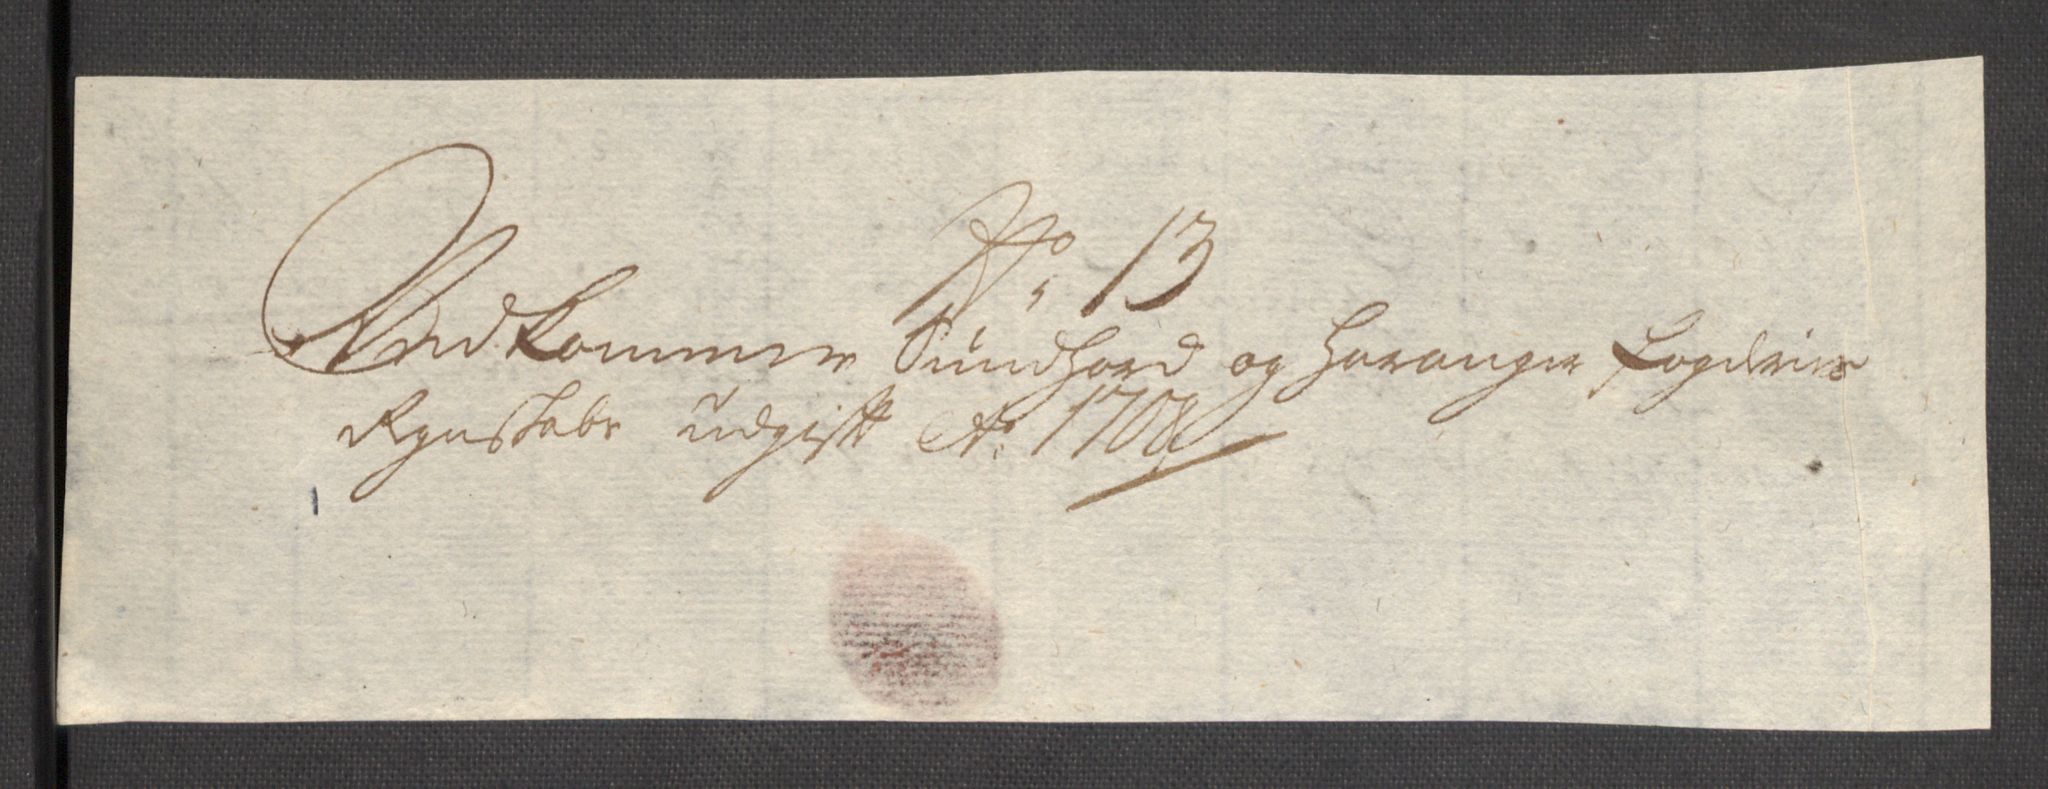 No: 13
Vedkommer Sundhord og Haranger fogderies
Regnskabs udgift Ao: 1708